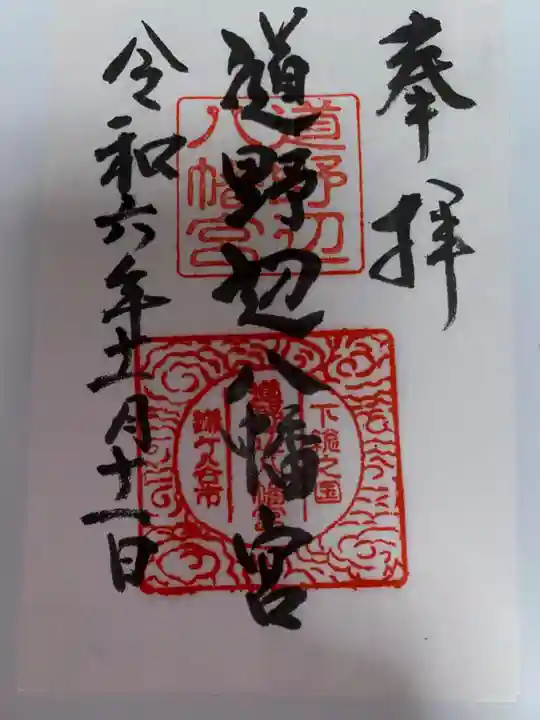 奉拝
道野辺八幡宮
令和六年十一月十一日
道野辺
八幡宮
下総之国
鎌ケ谷市